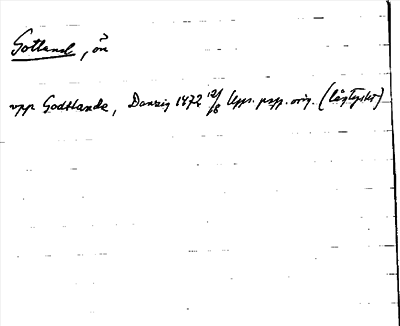 Gotland, ön
upp Godtlande, Danzig 1472 12/8 Upps. papp. orig. (lågtyskt)